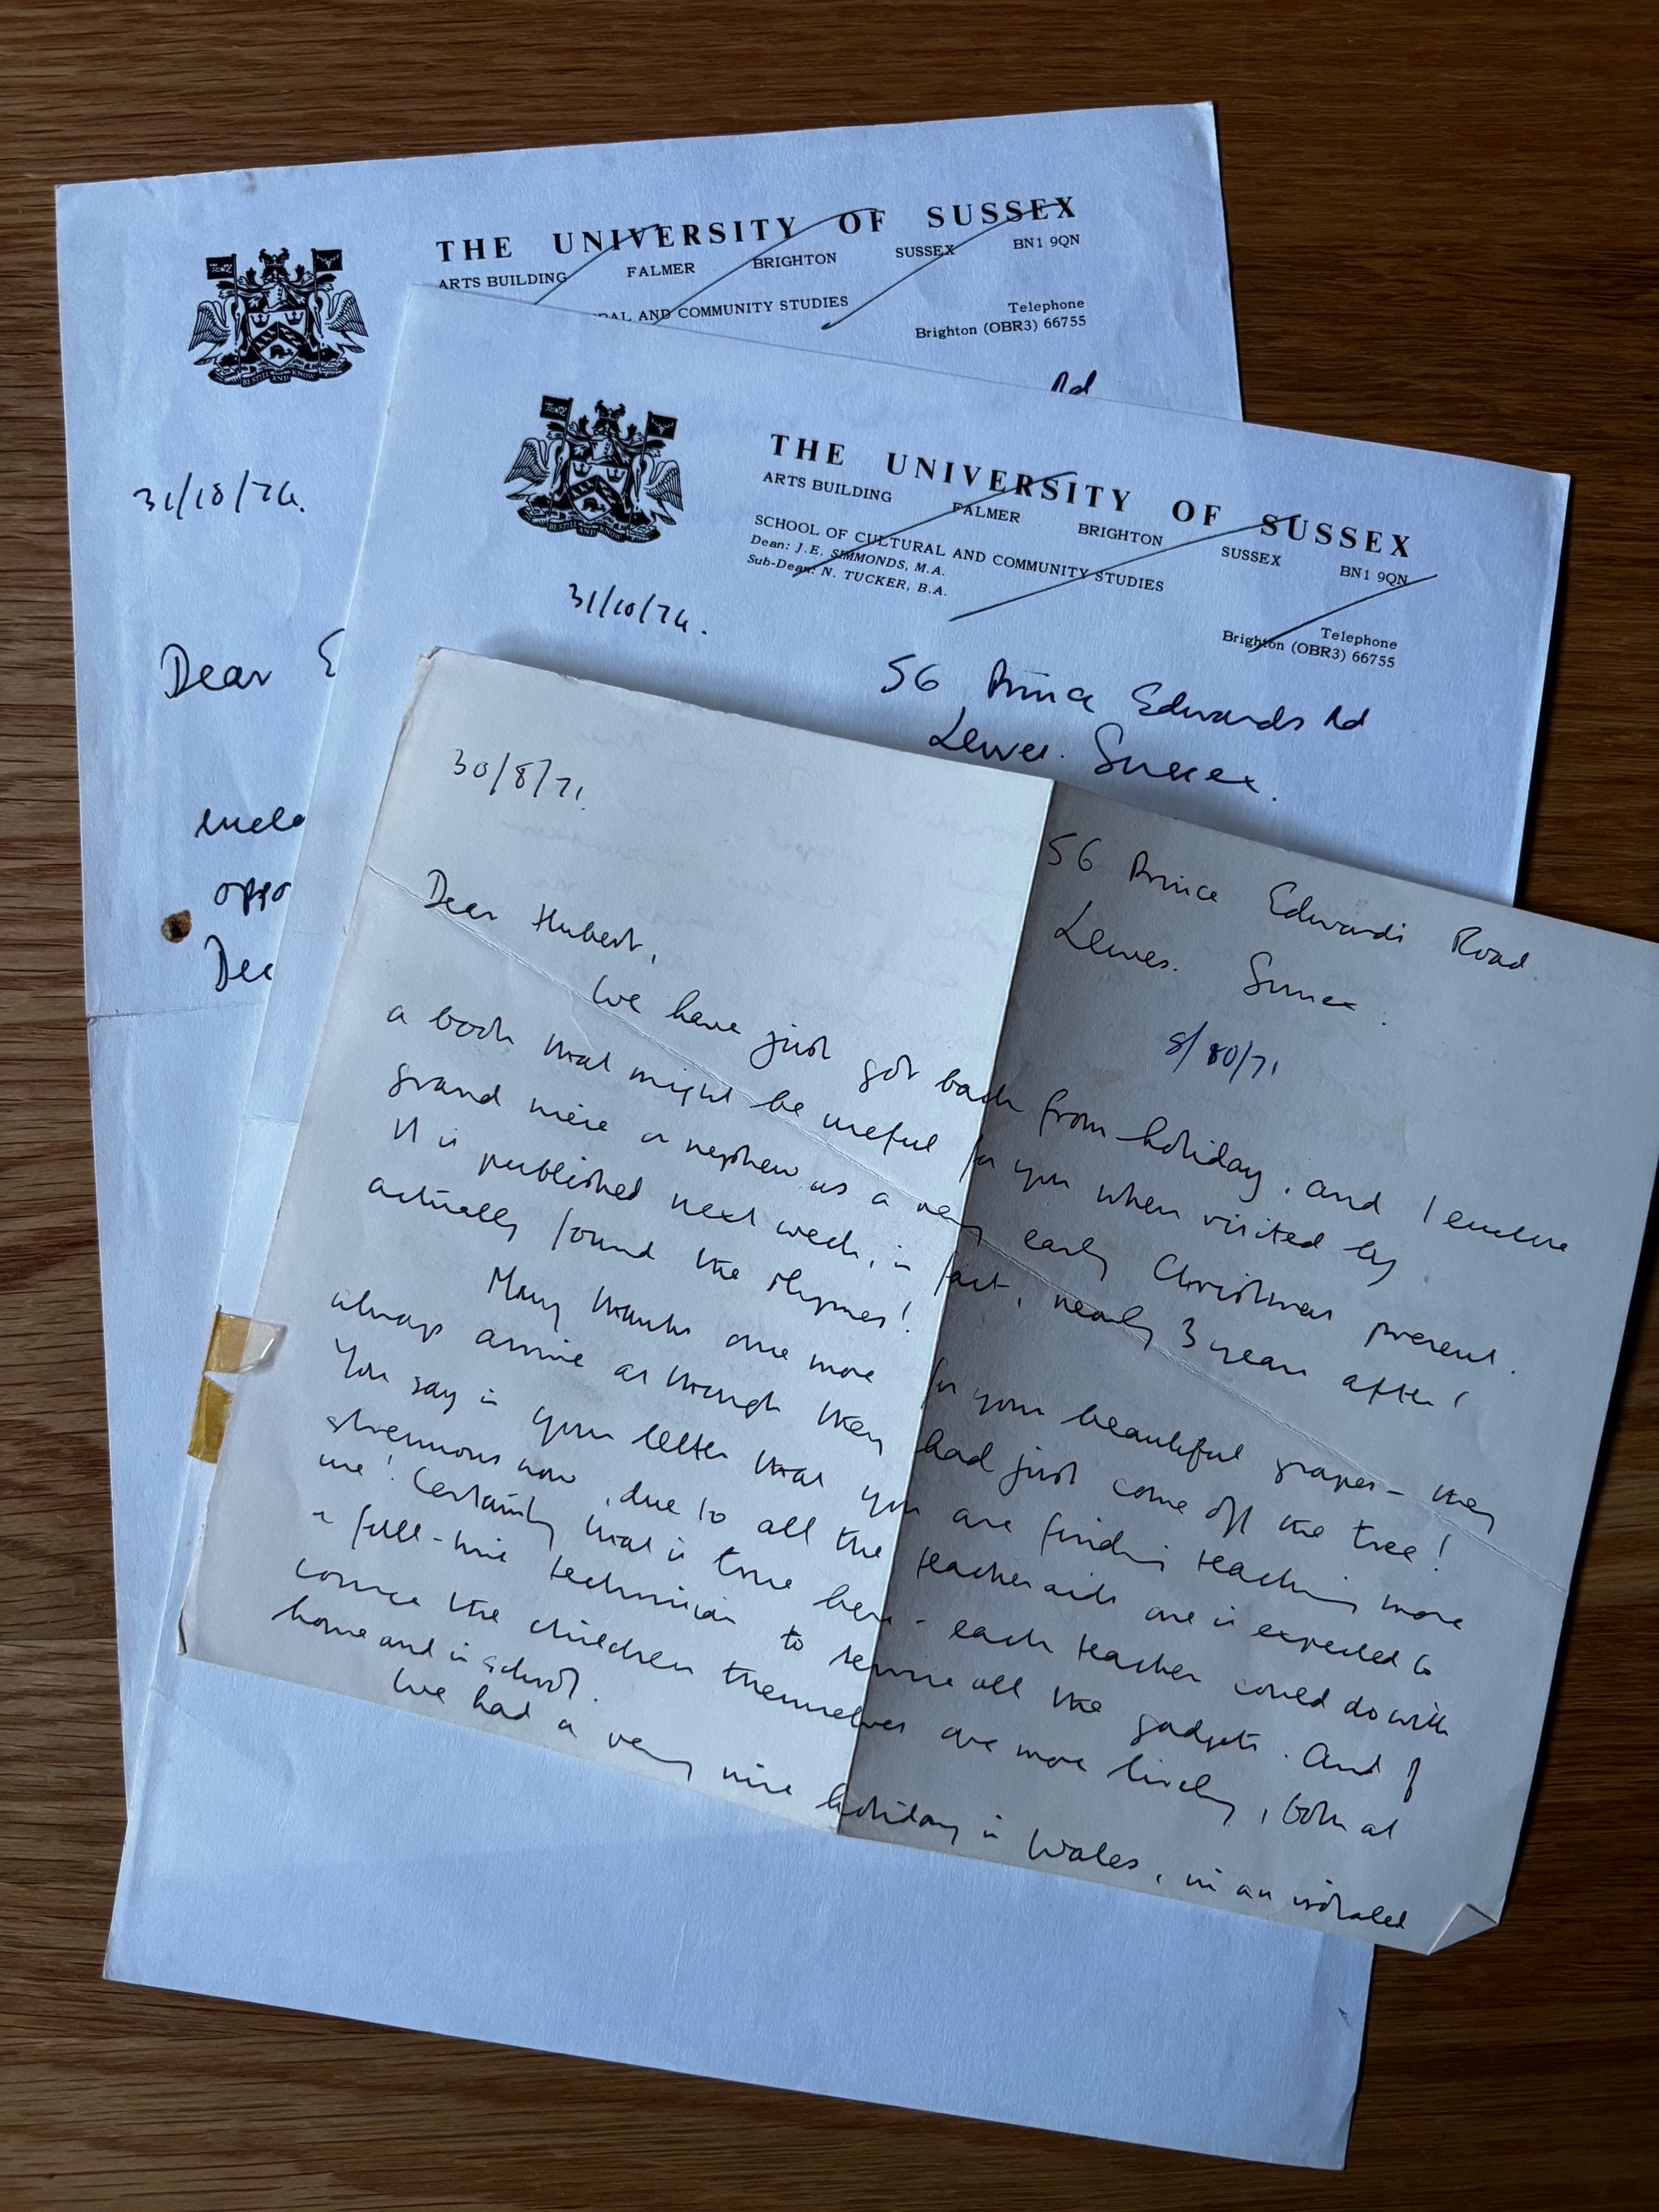 THE UNIVERSITY OF SUSSEX
ARTS BUILDING FALMER BRIGHTON SUSSEX BN1 9QN
RAL AND COMMUNITY STUDIES
Telephone
Brighton (OBR3) 66755
Rd
BE STILL AND KNOW
31/10/74.
Dear E
oppo
Dec
THE UNIVERSITY OF SUSSEX
ARTS BUILDING FALMER BRIGHTON SUSSEX BN1 9QN
SCHOOL OF CULTURAL AND COMMUNITY STUDIES
Dean: J.E. SIMMONDS, M.A.
Sub-Dean: N. TUCKER, B.A.
Telephone
Brighton (OBR3) 66755
BE STILL AND KNOW
31/10/74.
56 Prince Edwards Rd
Lewes. Sussex.
30/8/71
56 Prince Edwards Road
Lewes. Sussex.
8/80/71
Dear Hubert,
We have just got back from holiday, and I enclose
a book that might be useful for you when visited by
grand niece or nephew, as a very early Christmas present.
It is published next week, in fact, nearly 3 years after I
actually found the rhymes!
Many thanks once more for your beautiful grapes - they
always arrive as though they had just come off the tree!
You say in your letter that you are finding teaching more
strenuous now, due to all the teacher aids one is expected to
use! Certainly that is true here - each teacher could do with
a full-time technician to service all the gadgets. And of
course the children themselves are more lively, both at
home and in school.
We had a very nice holiday in Wales, in an isolated